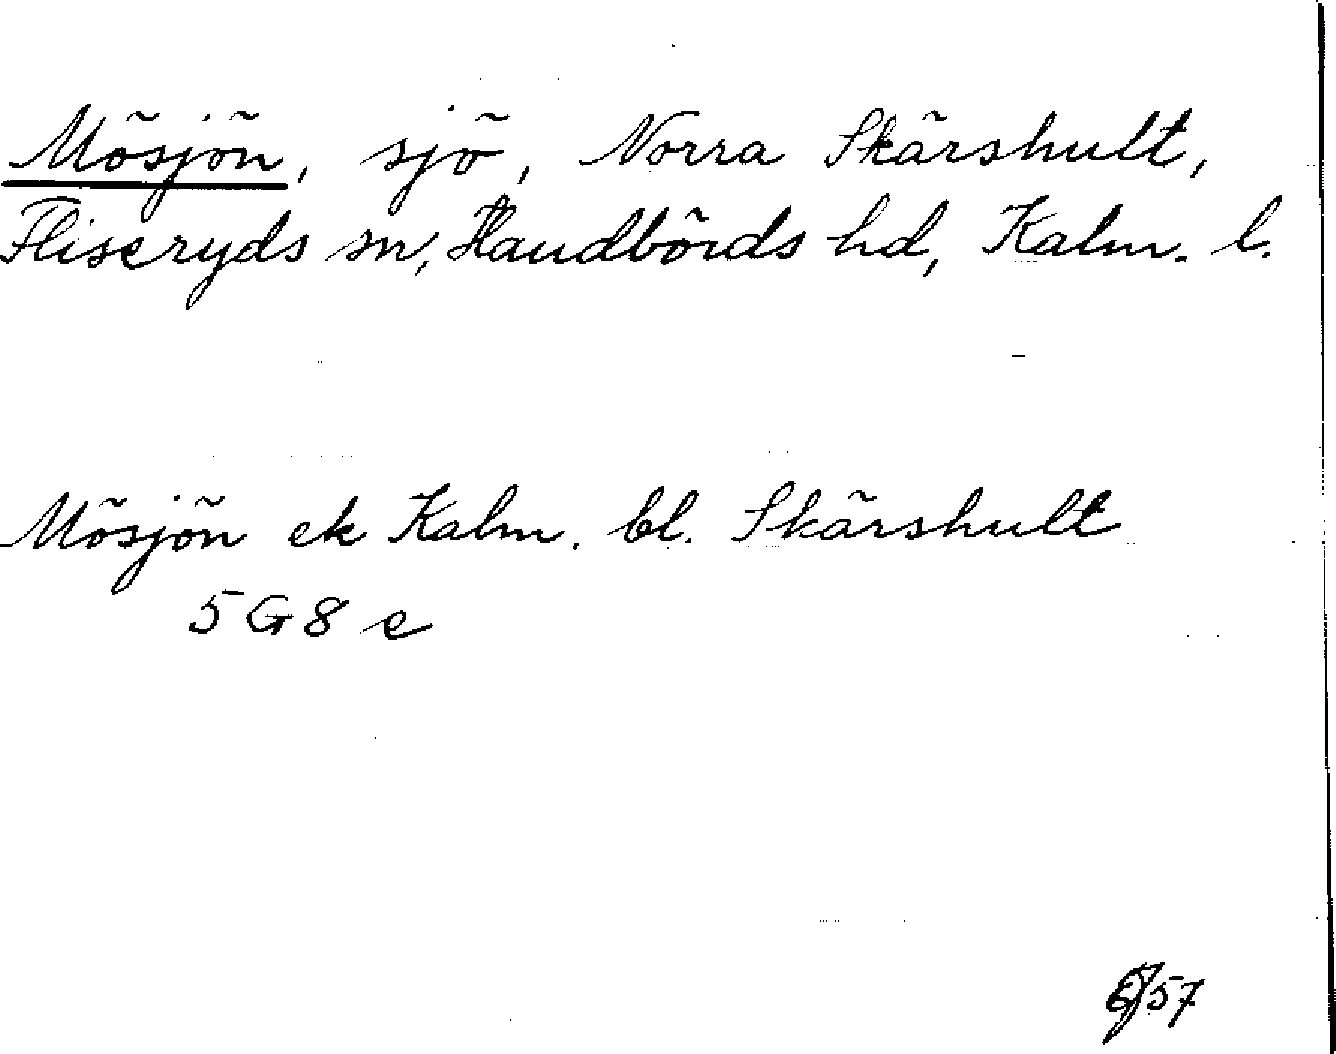 Mösjön, sjö, Norra Skärshult,
Fliseryds sn, Handbörds hd, Kalm. l.
Mösjön ek Kalm. bl. Skärshult
5 G 8 e
57